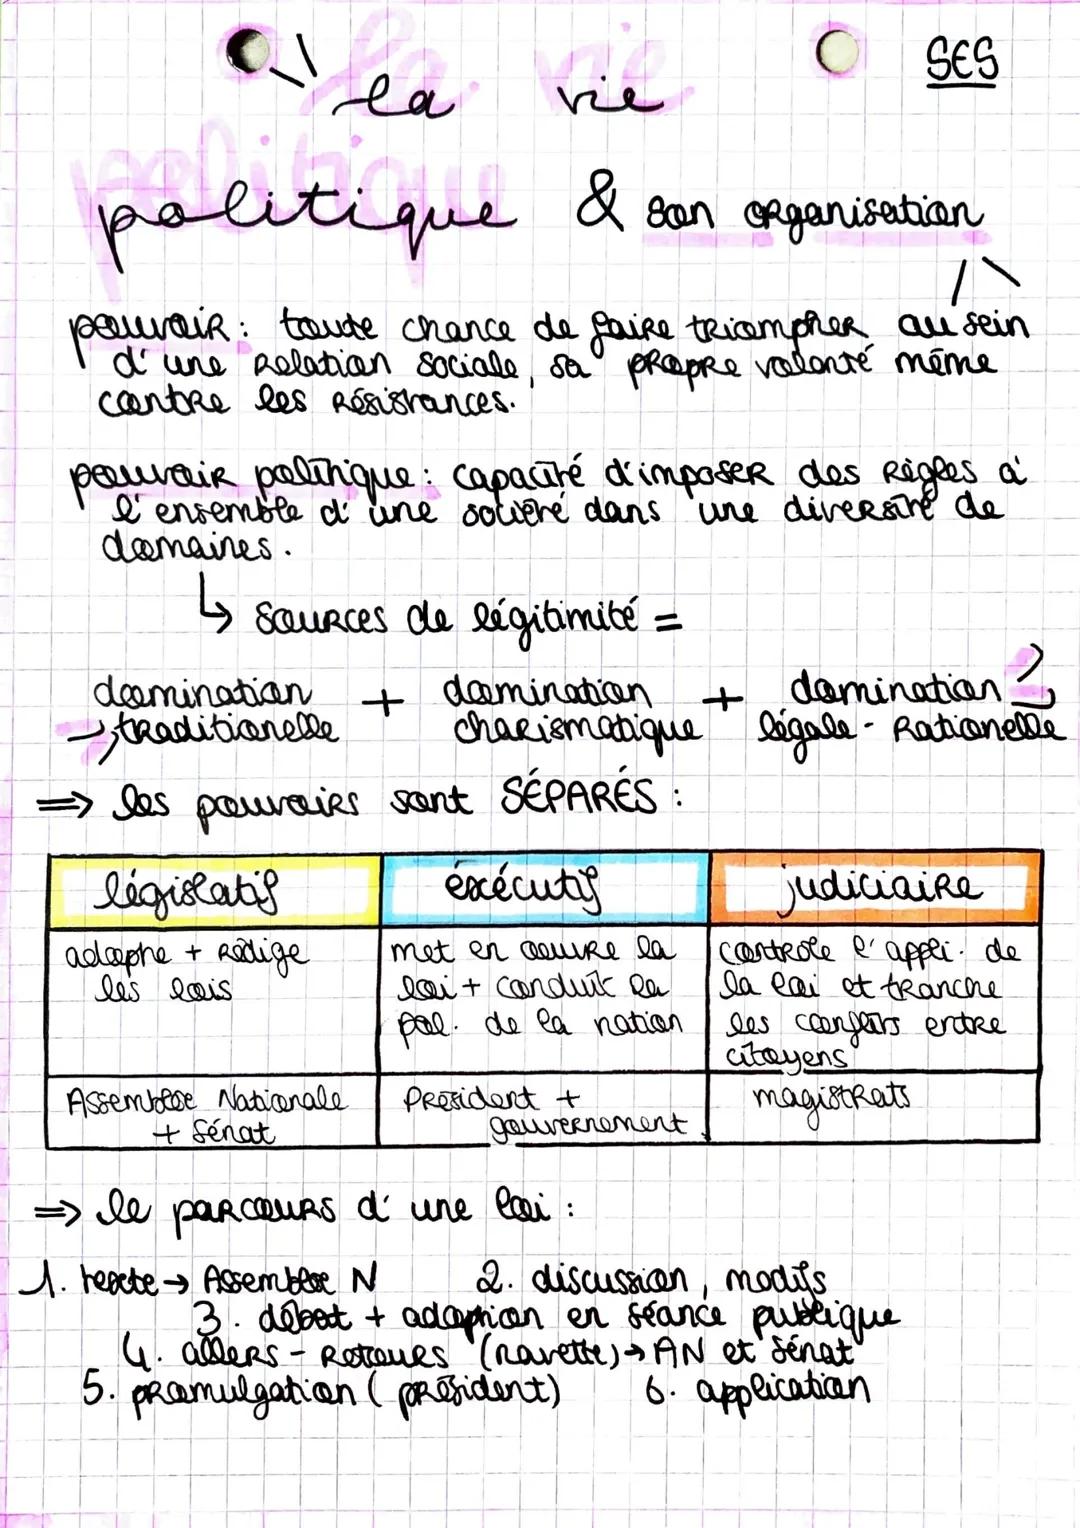 SES
la vie
politique & son organisation
pouvoir : toute chance de faire triompher au sein
d'une relation sociale, sa propre volonté même
contre les résistances.
pouvoir politique : capacité d'imposer des règles à
l'ensemble d'une société dans une diversité de
domaines.
↳ sources de légitimité =
domination + domination + domination
traditionelle charismatique légale - rationelle
=> les pouvoirs sont SÉPARÉS :
législatif éxécutif judiciaire
adopte + rédige
les lois
met en oeuvre la
loi + conduit la
pol. de la nation
contrôle l'appli. de
la loi et tranche
les conflits entre
citoyens
Assemblée Nationale
+ Sénat
Président +
gouvernement
magistrats
=> le parcours d'une loi :
1. texte → Assemblée N 2. discussion, modifs
3. débat + adoption en séance publique
4. allers - retours (navette) → AN et Sénat
5. promulgation (président) 6. application